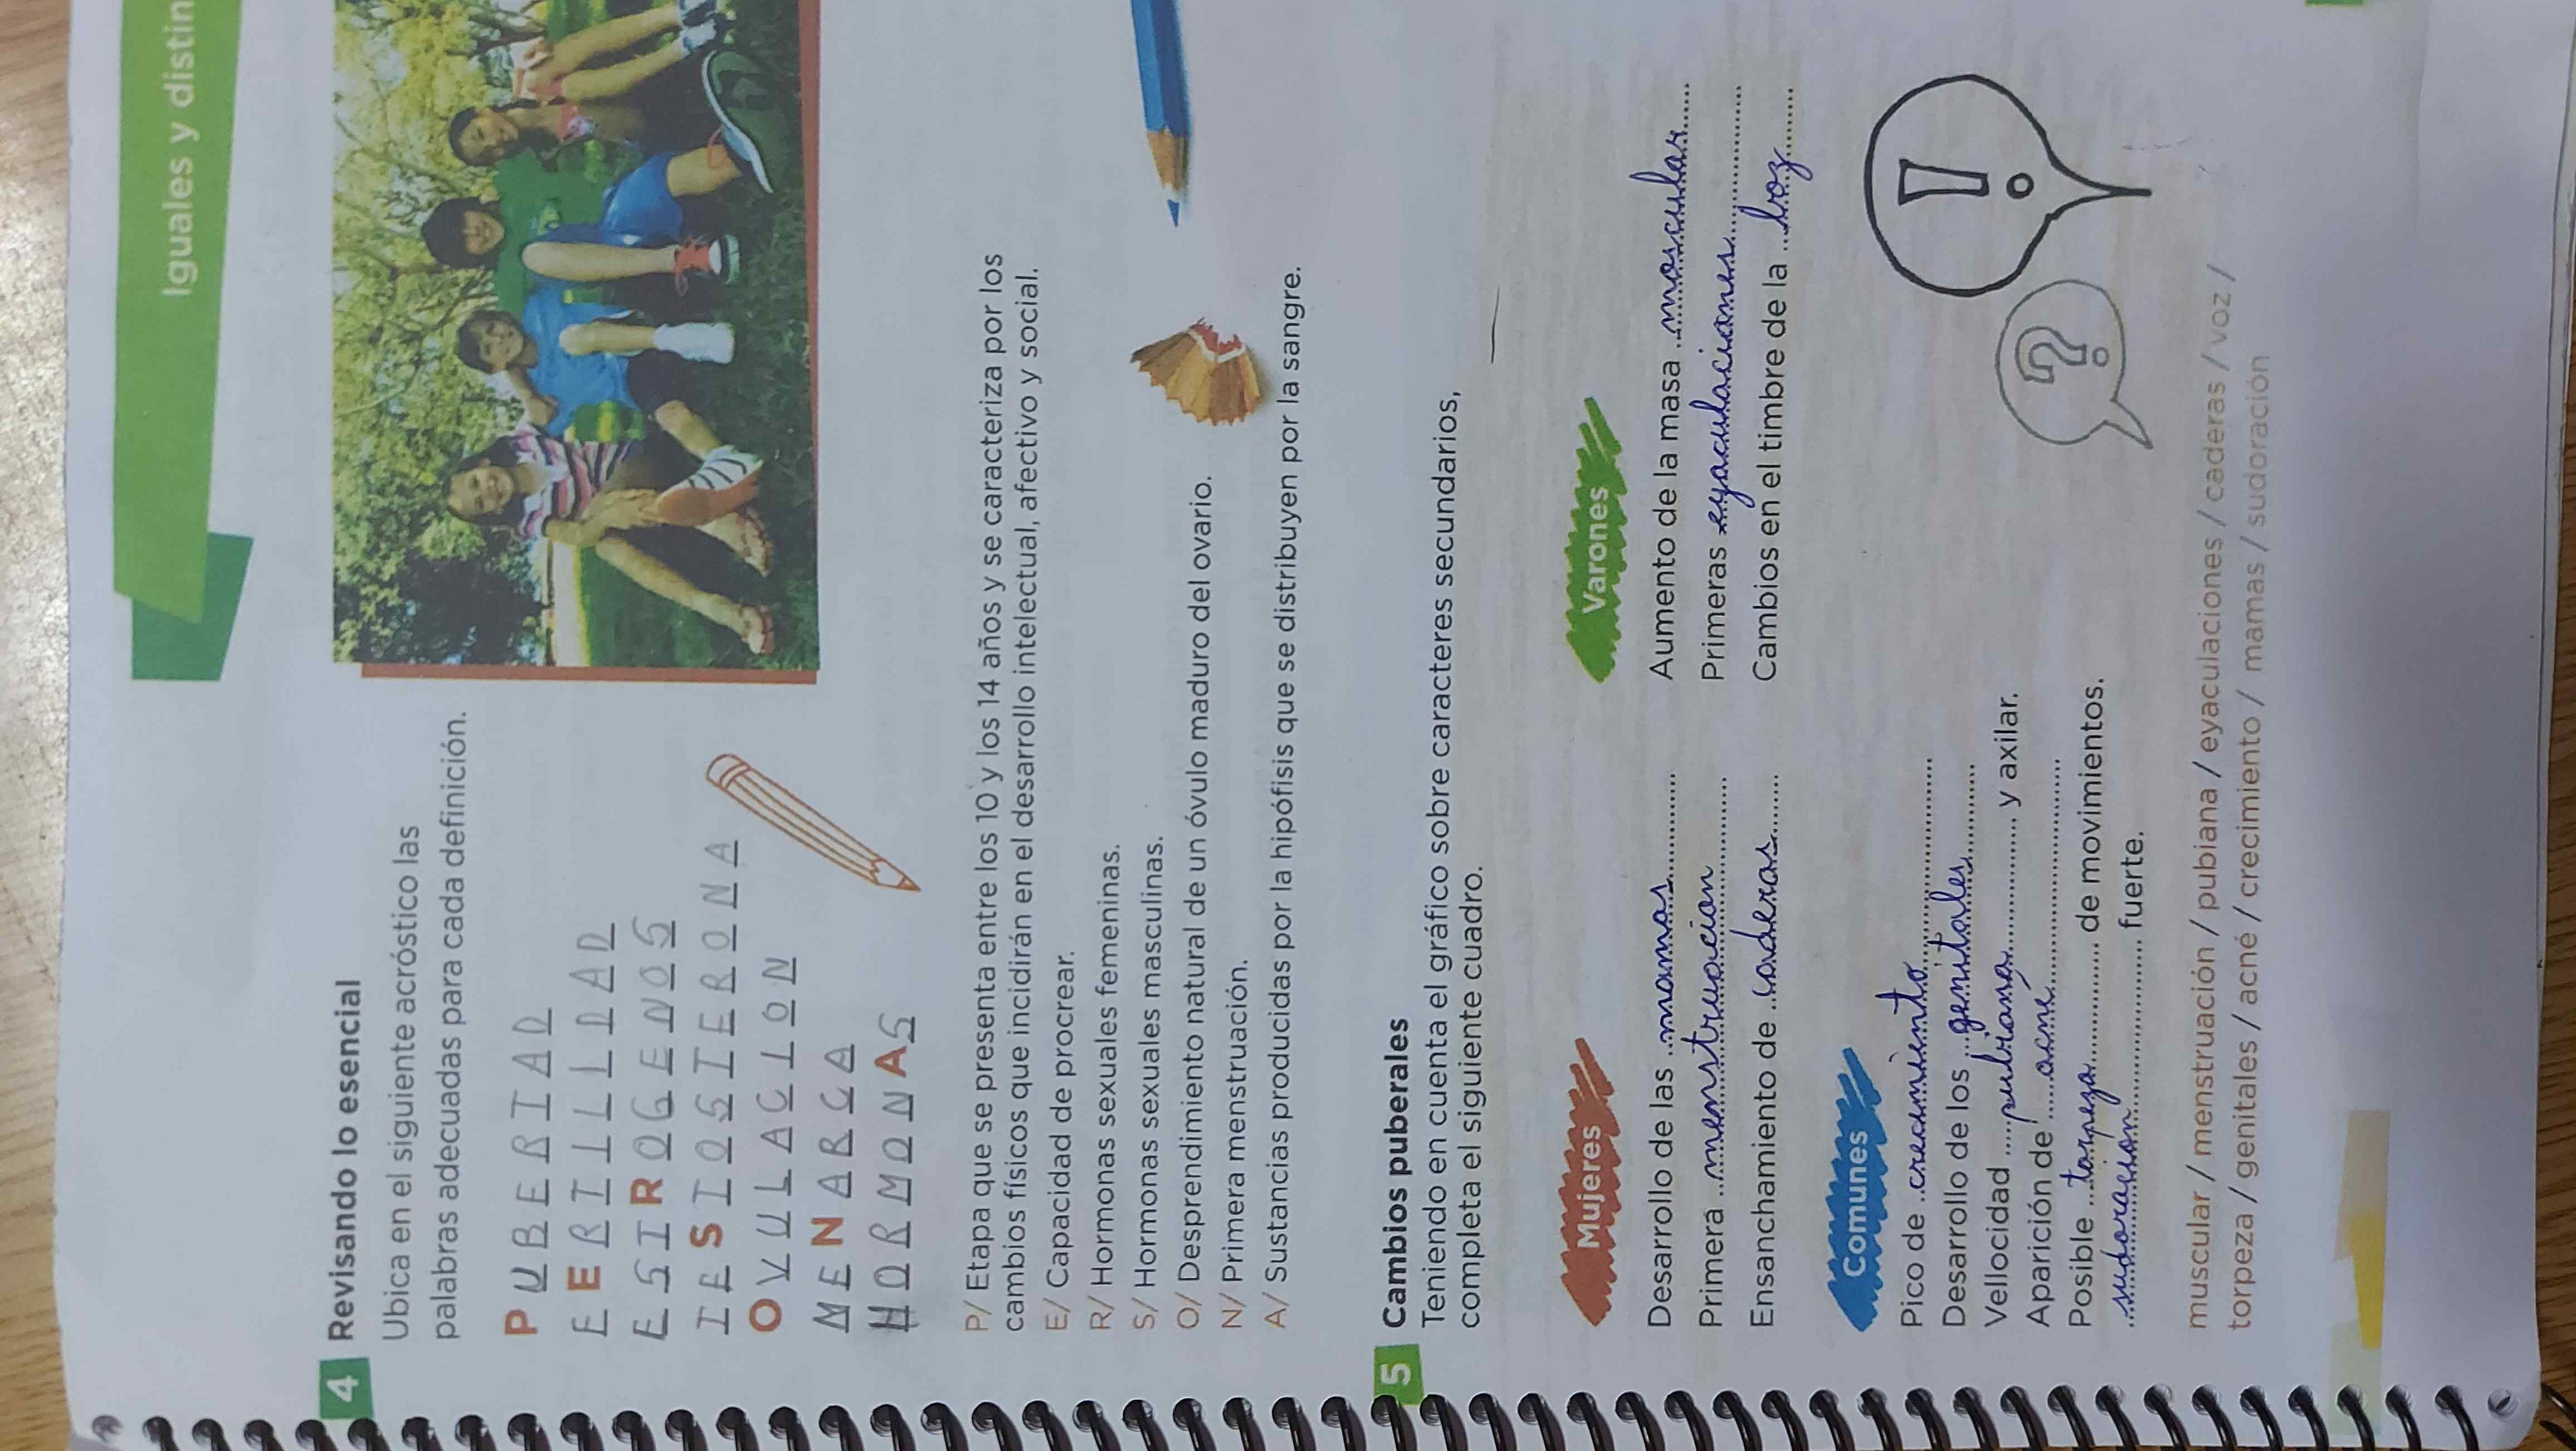 Iguales y distin
4 Revisando lo esencial
Ubica en el siguiente acróstico las
palabras adecuadas para cada definición.
PUBERTAD
FERTILIDAD
ESTROGENOS
TESTOSTERONA
OVULACION
MENARCA
HORMONAS
P/ Etapa que se presenta entre los 10 y los 14 años y se caracteriza por los
cambios físicos que incidirán en el desarrollo intelectual, afectivo y social.
E/ Capacidad de procrear.
R/ Hormonas sexuales femeninas.
S/ Hormonas sexuales masculinas.
O/ Desprendimiento natural de un óvulo maduro del ovario.
N/ Primera menstruación.
A/ Sustancias producidas por la hipófisis que se distribuyen por la sangre.
5 Cambios puberales
Teniendo en cuenta el gráfico sobre caracteres secundarios,
completa el siguiente cuadro.
Mujeres
Desarrollo de las mamas
Primera menstruacion
Ensanchamiento de caderas
Varones
Aumento de la masa moscular
Primeras eyaculaciones
Cambios en el timbre de la boz
Comunes
Pico de crecimiento
Desarrollo de los genitales
Vellocidad pubiana y axilar.
Aparición de acné
Posible torpeza de movimientos.
sudoracion fuerte.
?
!
muscular / menstruación / pubiana / eyaculaciones / caderas / voz /
torpeza / genitales / acné / crecimiento / mamas / sudoración